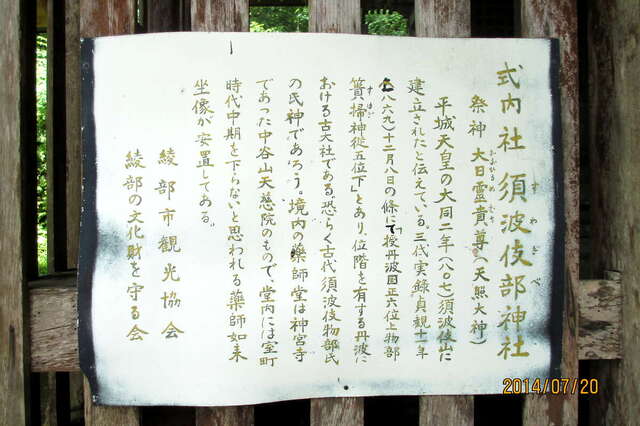 式内社 須波伎部神社
すわぎべ
祭神 大日霊貴尊(天照大神)
おおひるめむち
平城天皇の大同二年(八〇七)須波伎山に
建立されたと伝えている。三代実録貞観十一年
(八六九)十二月八日の條に「授丹波国正六位上物部
簀掃神従五位下」とあり、位階を有する丹波に
すはい
おける古大社である。恐らく古代須波伎物部氏
の氏神であろう。境内の薬師堂は神宮寺
であった中谷山天慈院のもので、堂内には室町
時代中期を下らないと思われる薬師如来
坐像が安置してある。
綾部市観光協会
綾部の文化財を守る会
2014/07/20